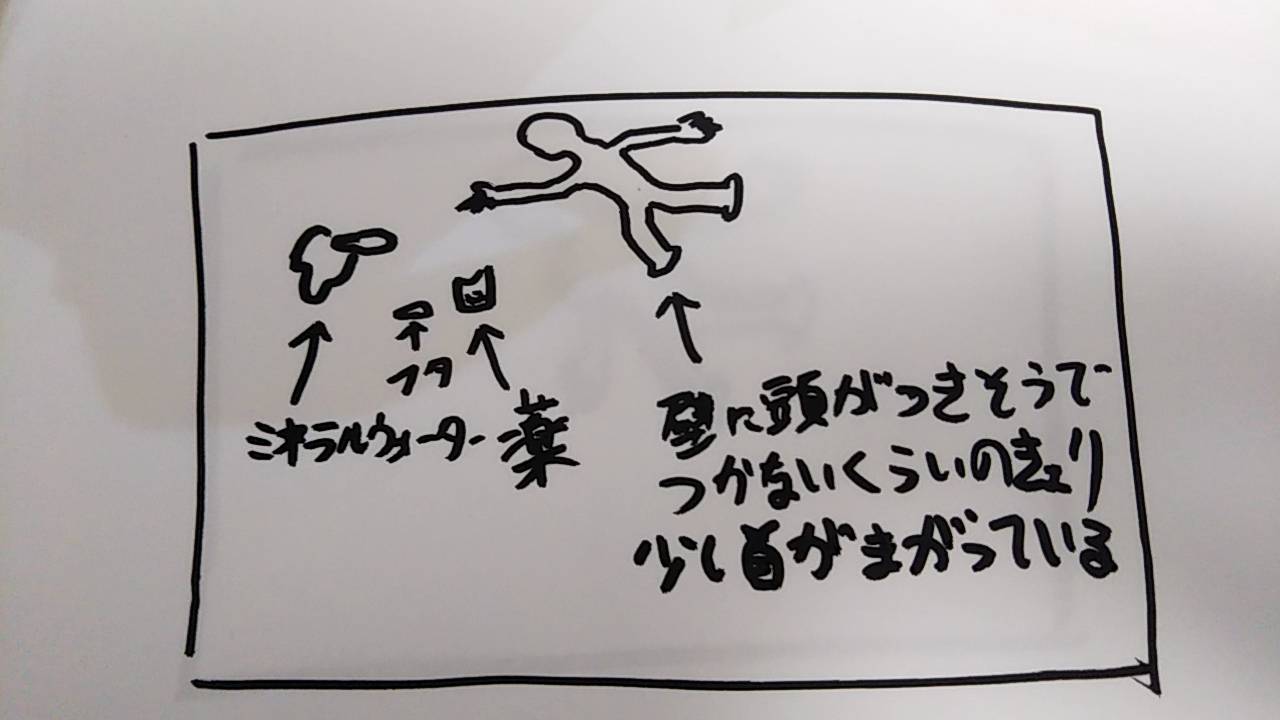 フタ
ミネラルウォーター
薬
壁に頭がつきそうで
つかないくらいのきょり
少し首がまがっている